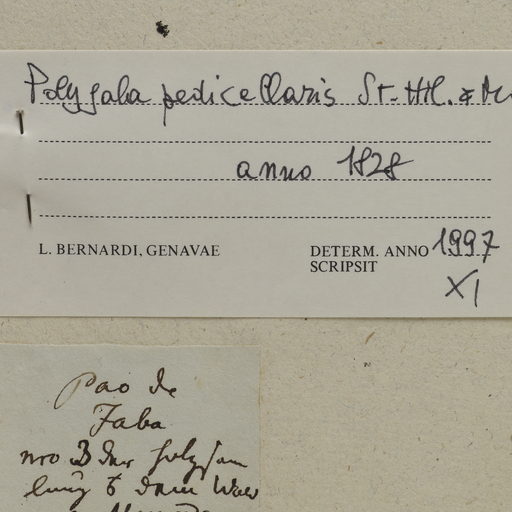 Polygala pedicellaris St-Hil. &
anno 1828
L. BERNARDI, GENAVAE
DETERM. ANNO 1997
SCRIPSIT
XI
Pao de
Faba
nro 3